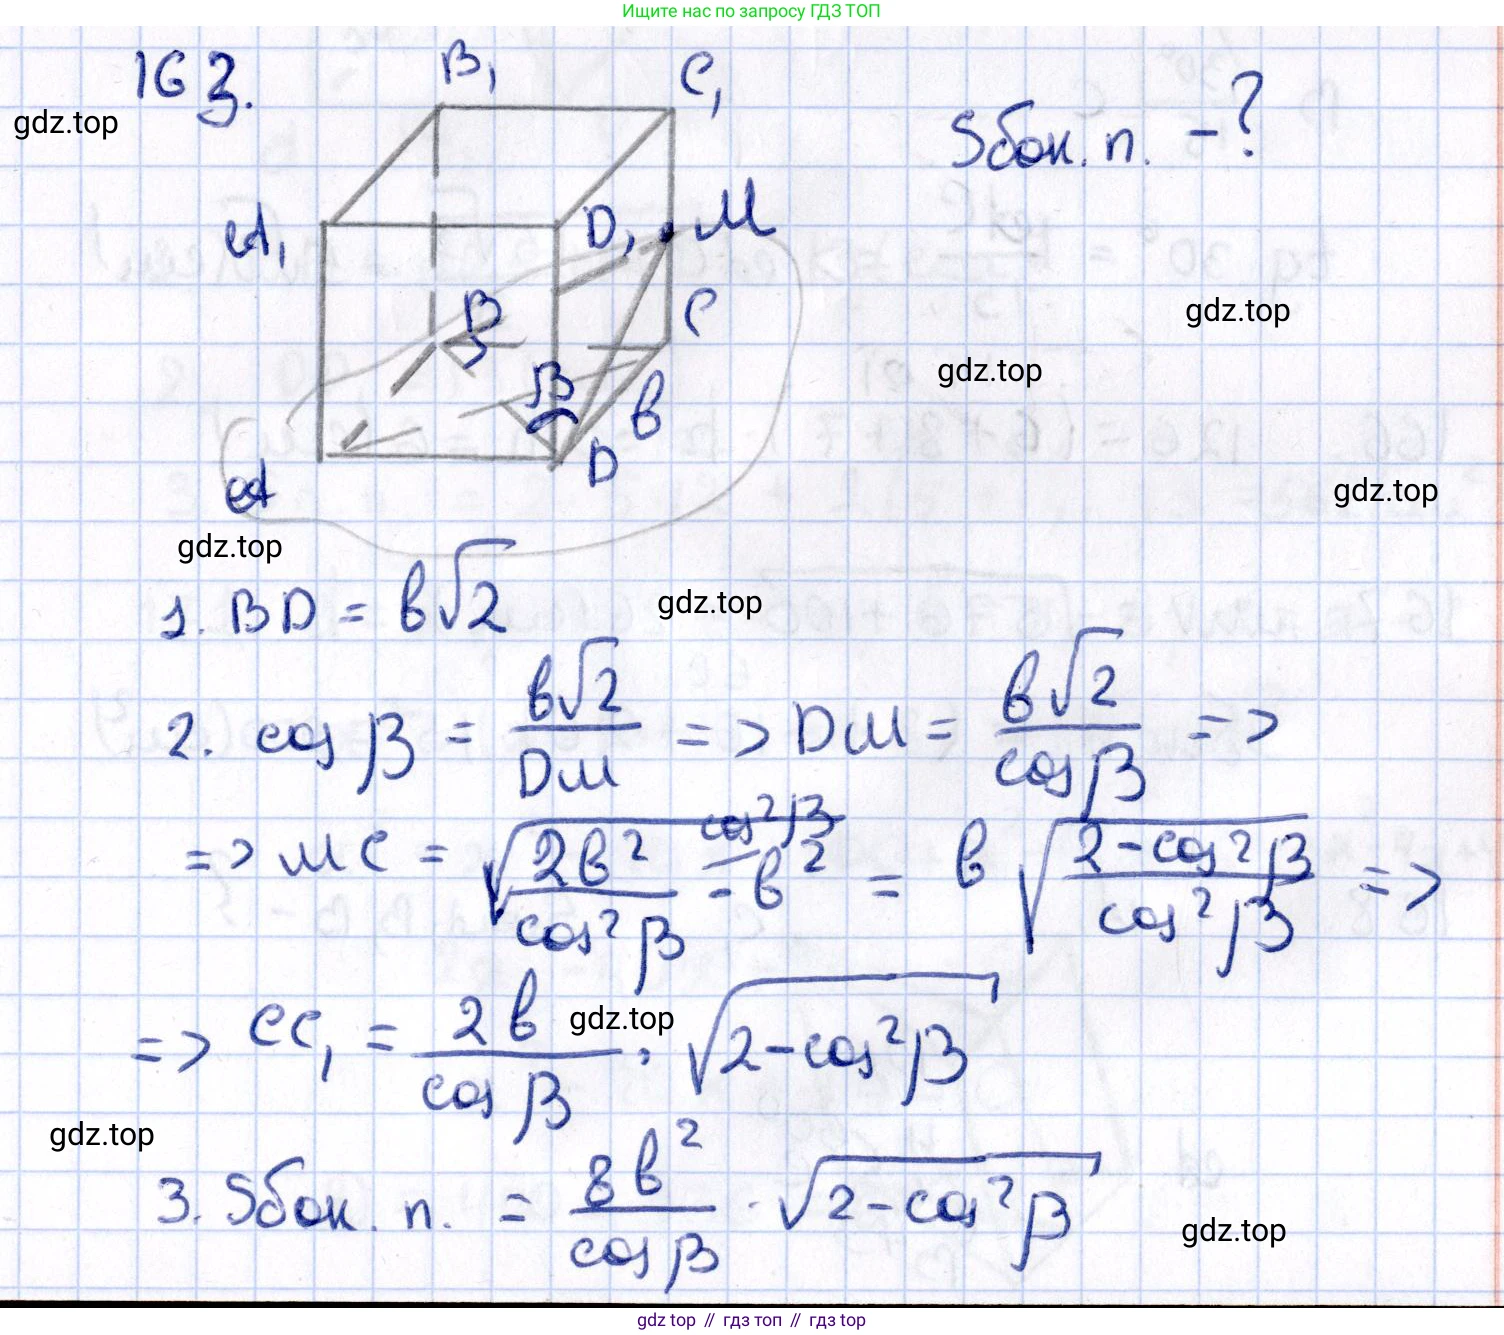 Ищите нас по запросу ГДЗ ТОП
163.
B₁
C₁
gdz.top
Sбок. п. - ?
A₁
D₁
M
B
C
gdz.top
gdz.top
β
b
A
D
gdz.top
gdz.top
1. BD = b√2
gdz.top
2. cos β = b√2 / DM => DM = b√2 / cos β =>
=> MC = √(2b² / cos² β - b² cos² β) = b √((2 - cos² β) / cos² β) =>
=> CC₁ = 2b / cos β · √(2 - cos² β)
gdz.top
gdz.top
3. Sбок. п. = 8b² / cos β · √(2 - cos² β)
gdz.top
gdz top // гдз топ // гдз top